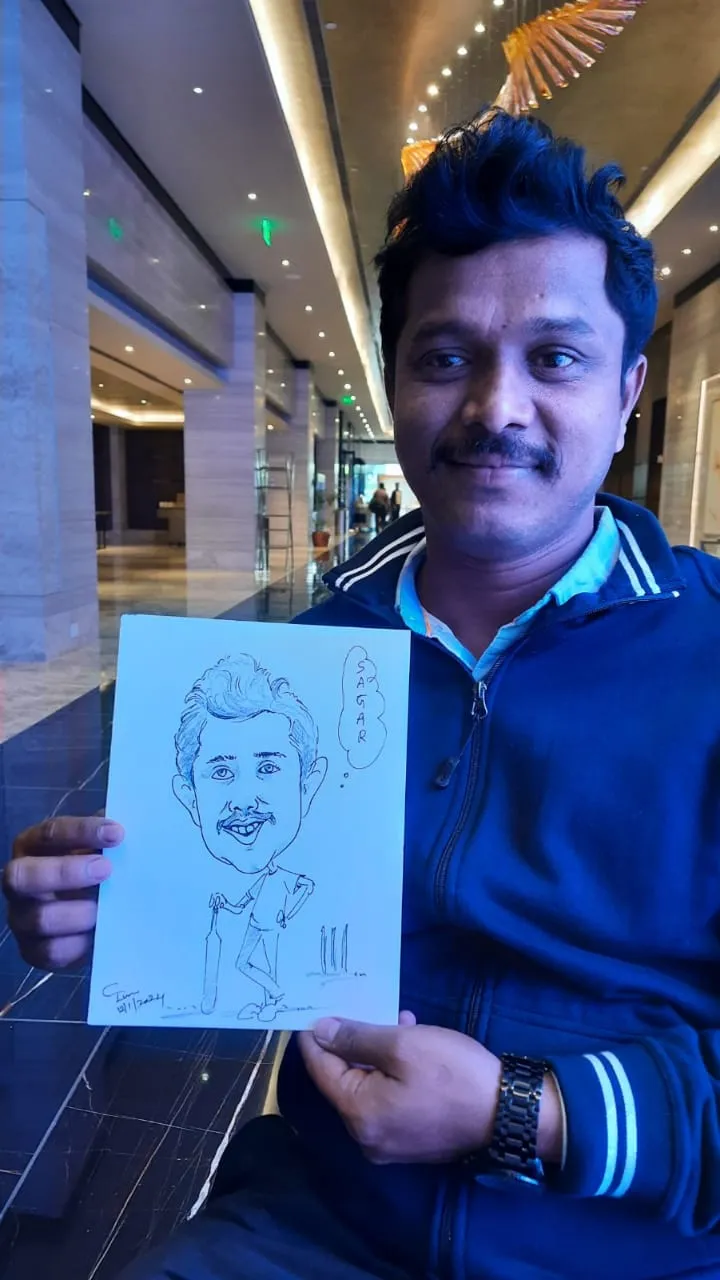 SAGAR
12/1/2024